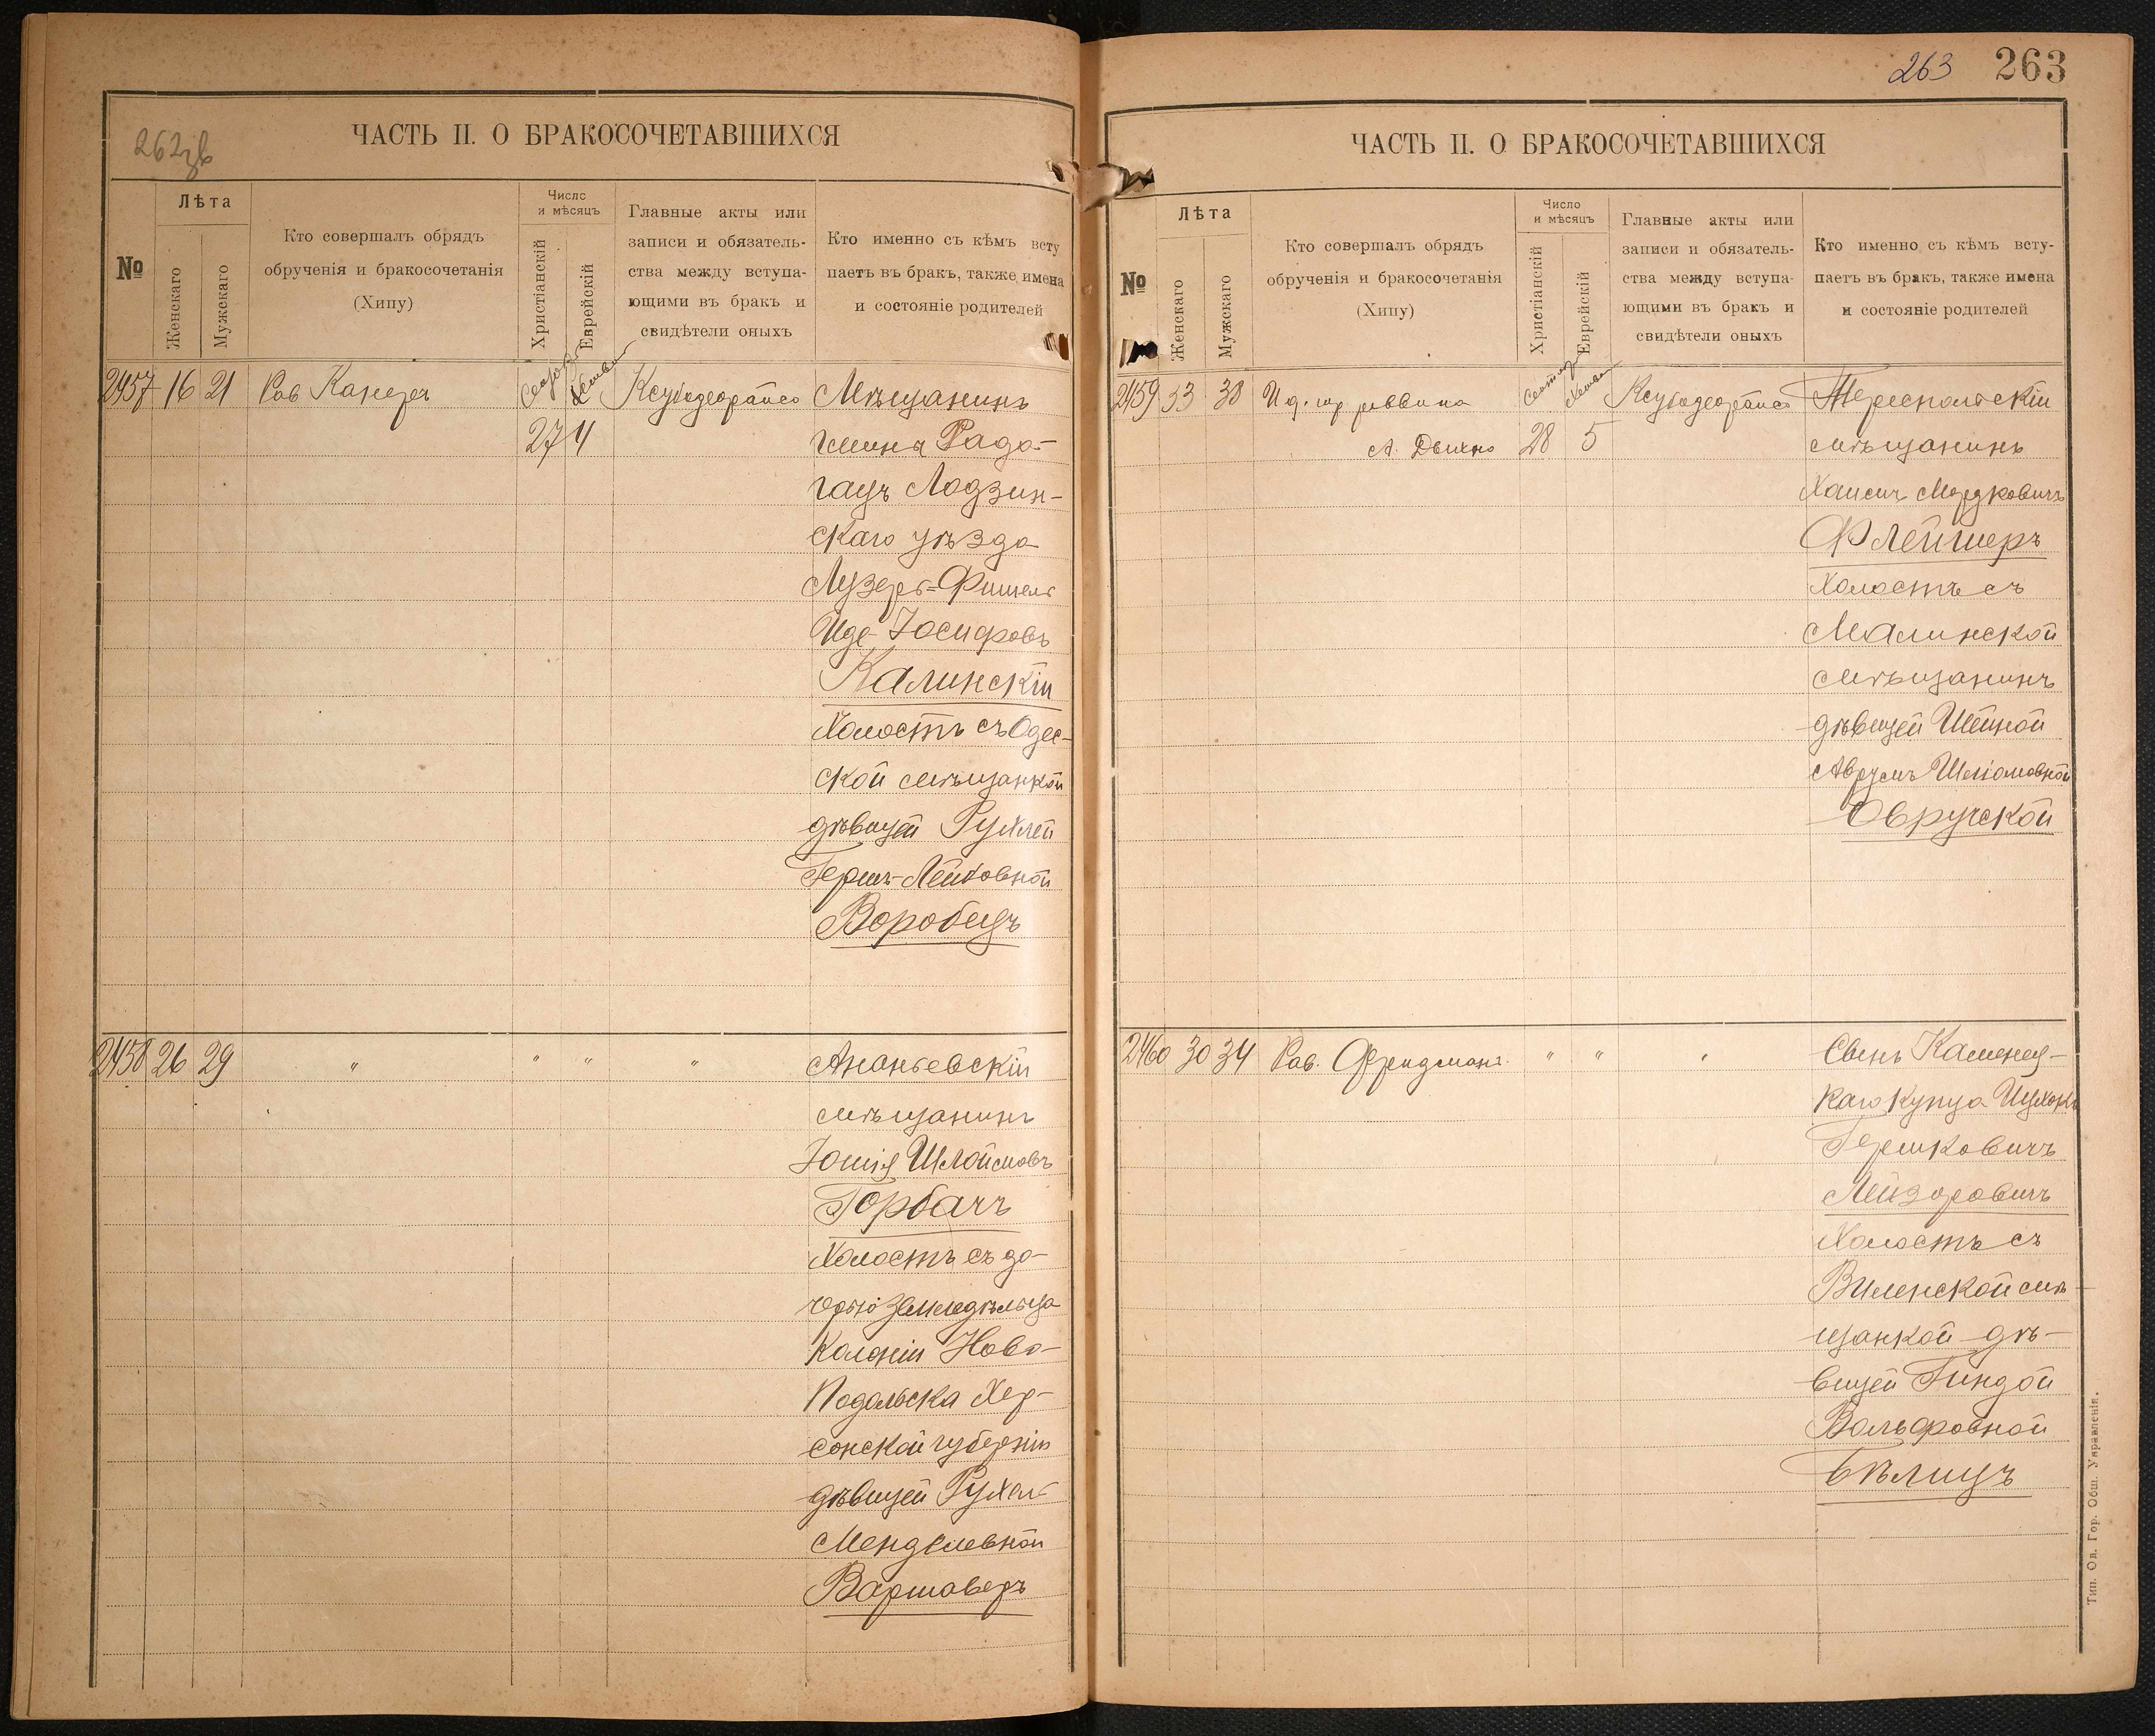 262зв
ЧАСТЬ II. О БРАКОСОЧЕТАВШИХСЯ
№
Лѣта
Женскаго
Мужскаго
Кто совершалъ обрядъ
обрученія и бракосочетанія
(Хипу)
Число
и мѣсяцъ
Христіанскій
Еврейскій
Главные акты или
записи и обязатель-
ства между вступа-
ющими въ бракъ и
свидѣтели оныхъ
Кто именно съ кѣмъ всту
паетъ въ бракъ, также имена
и состояніе родителей
2457 16 21 Рав
27 4
Мѣщанинъ
гмины Радо-
гащъ Лодзин-
скаго уѣзда
Лузеръ-Фишель
Иде-Іосифовъ
Калинскій
Холостъ съ Одес-
ской мѣщанкой
дѣвицей Рухлей
Гершъ-Лейбовной
Воробецъ
2458 26 29 " " " "
Ананьевскій
мѣщанинъ
Іошія Шлоймовъ
Горбачъ
Холостъ съ до-
черью земледѣльца
Колоніи Ново-
Подольска Хер-
сонской губерніи
дѣвицей Рухель
Менделевной
Варшаверъ
263 263
ЧАСТЬ II. О БРАКОСОЧЕТАВШИХСЯ
№
Лѣта
Женскаго
Мужскаго
Кто совершалъ обрядъ
обрученія и бракосочетанія
(Хипу)
Число
и мѣсяцъ
Христіанскій
Еврейскій
Главные акты или
записи и обязатель-
ства между вступа-
ющими въ бракъ и
свидѣтели оныхъ
Кто именно съ кѣмъ всту-
паетъ въ бракъ, также имена
и состояніе родителей
2459 33 38 И. д. гор раввина
28 5
Тереспольскій
мѣщанинъ
Хаимъ Мордковичъ
Флейшеръ
Холостъ съ
Малинской
мѣщанинъ
дѣвицей Шейной
Аврумъ Шліомовной
Овручской
2460 30 34 Рав. Фридманъ " " "
Сынъ Каменец-
каго купца
Гершковичъ
Лейзоровичъ
Холостъ съ
Виленской мѣ-
щанкой дѣ-
вицей Гиндой
Вольфовной
Бѣлицъ
Тип. Од. Гор. Общ. Управленія.